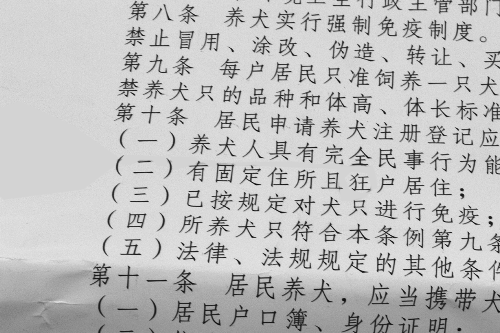 生行政主管部门
第八条 养犬实行强制免疫制度。
禁止冒用、涂改、伪造、转让、买
第九条 每户居民只准饲养一只犬
禁养犬只的品种和体高、体长标准
第十条 居民申请养犬注册登记应
(一)养犬人具有完全民事行为能
(二)有固定住所且独户居住;
(三)已按规定对犬只进行免疫;
(四)所养犬只符合本条例第九条
(五)法律、法规规定的其他条件
第十一条 居民养犬,应当携带犬
(一)居民户口簿、身份证明;